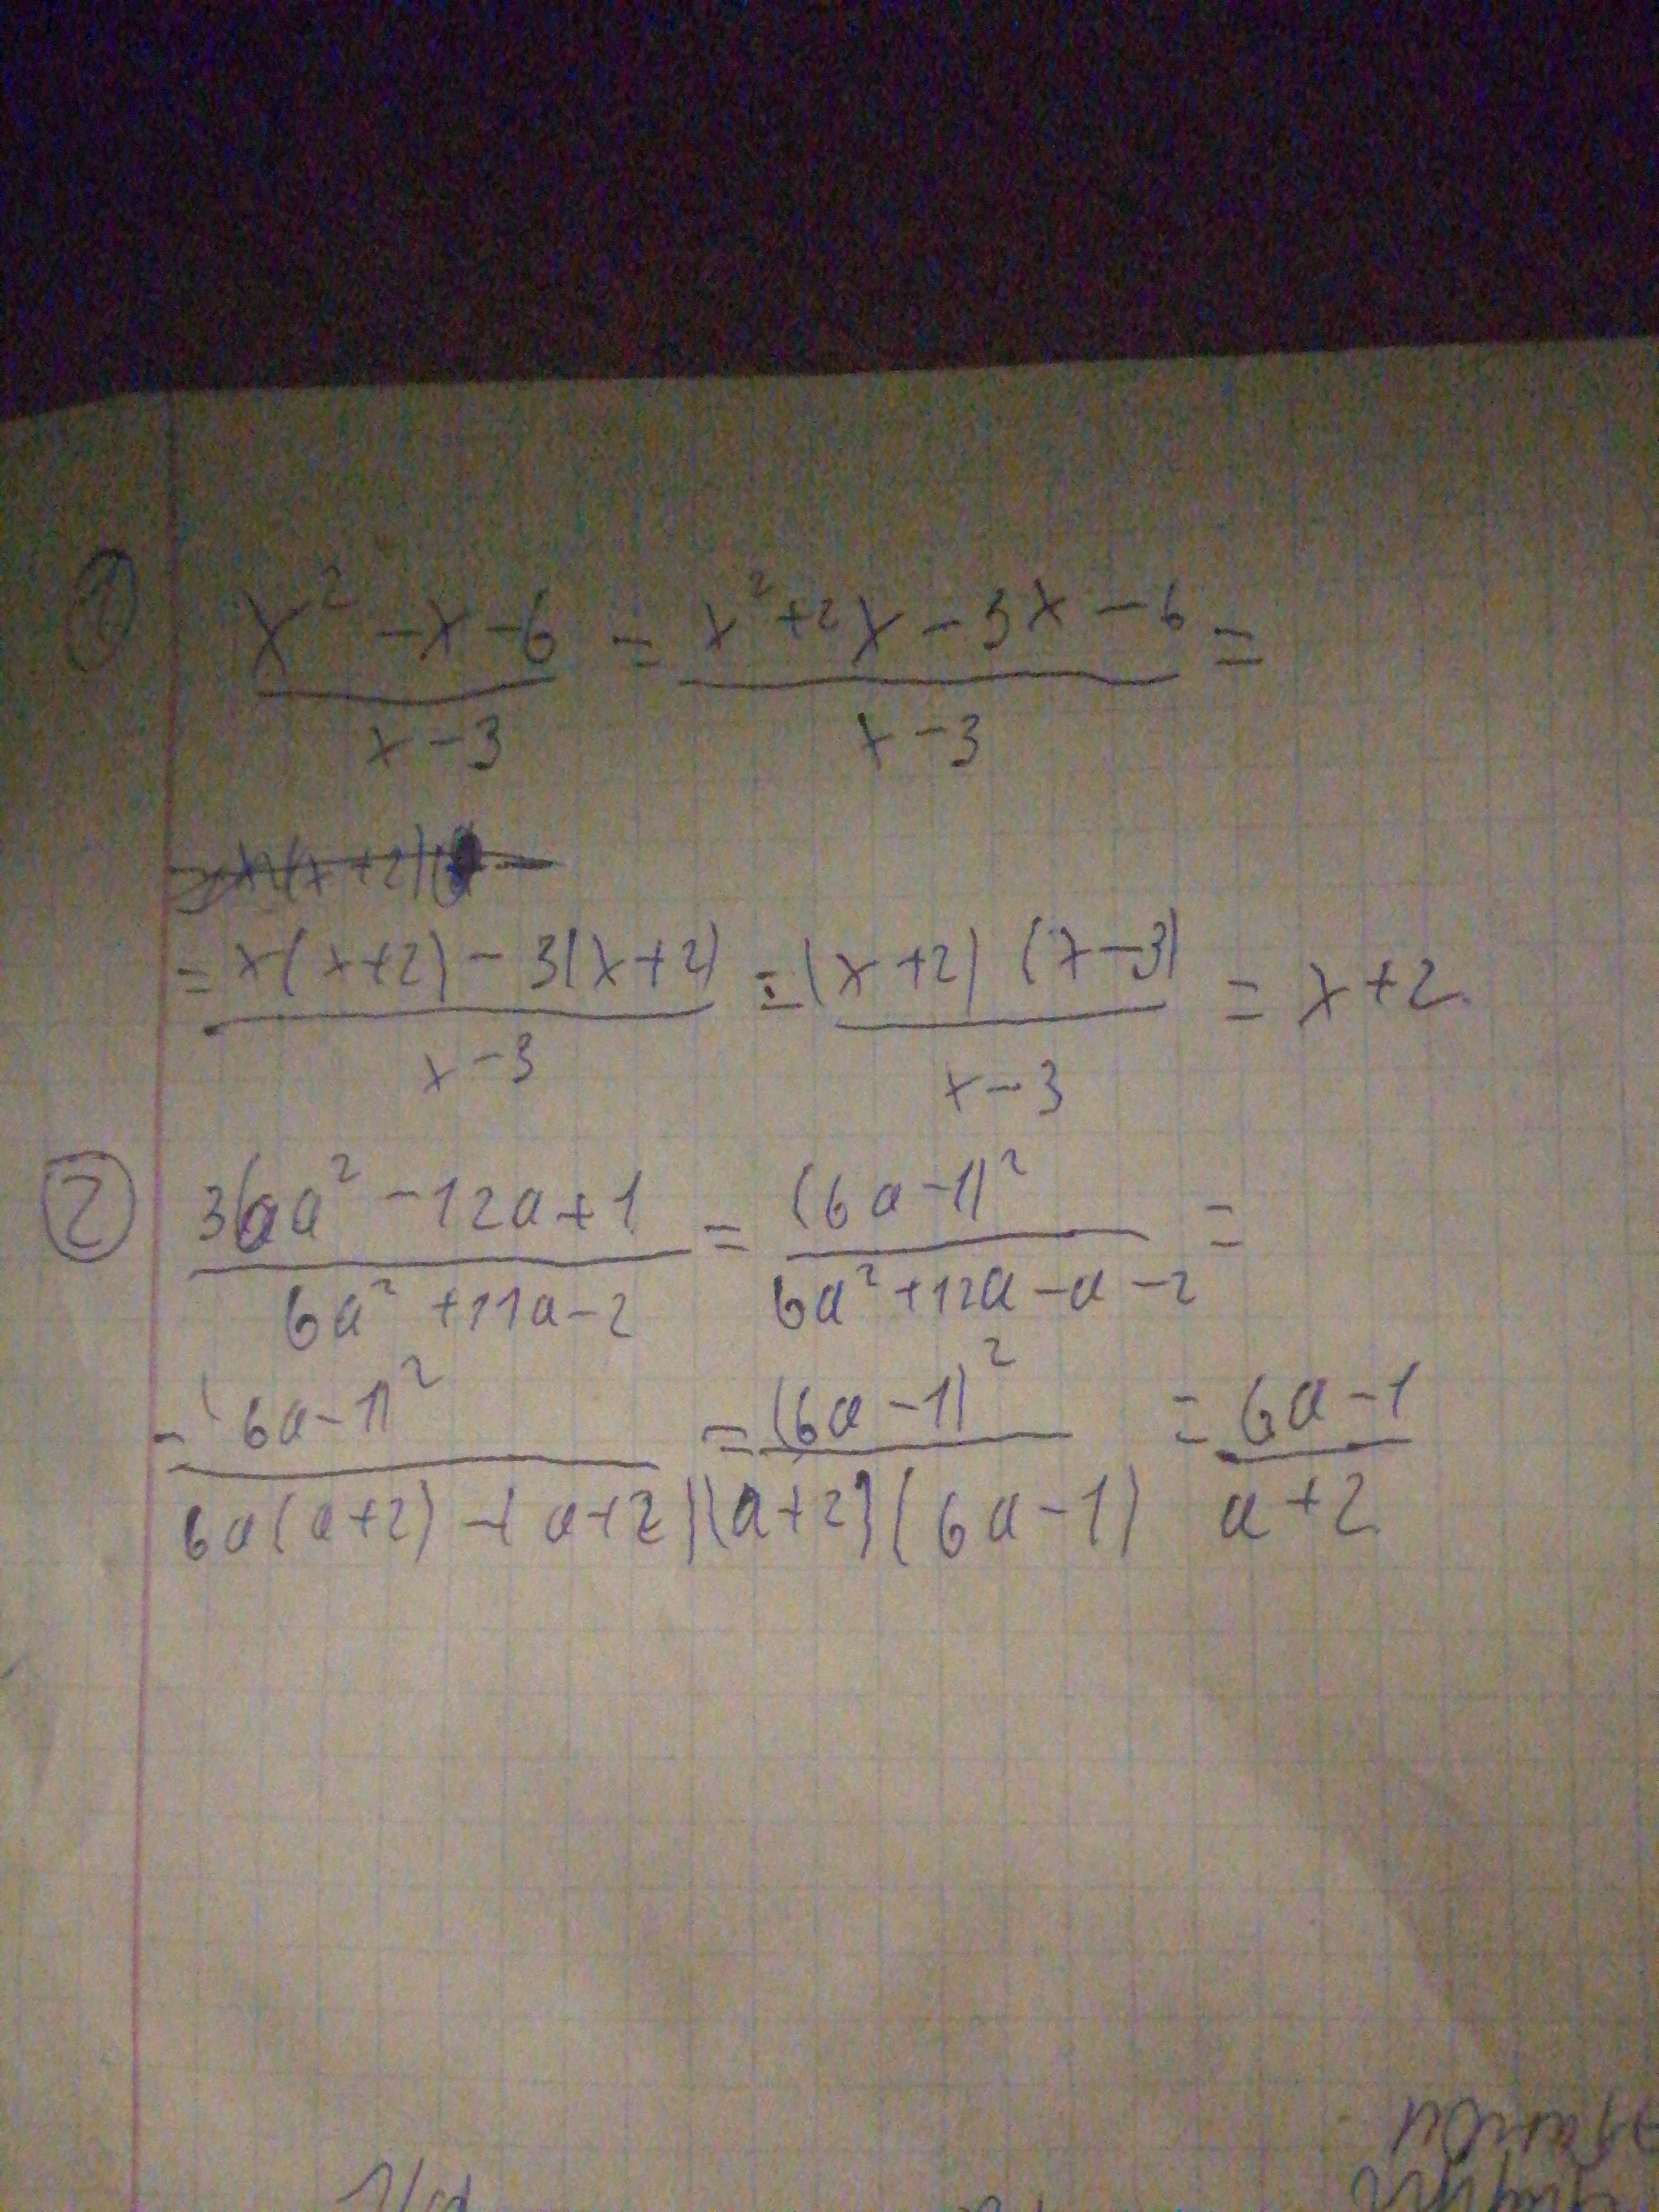 ① x² - x - 6 / x - 3 = x² + 2x - 3x - 6 / x - 3 =
= x(x+2) - 3(x+2) / x - 3 = (x+2) (x-3) / x - 3 = x + 2
② 36a² - 12a + 1 / 6a² + 11a - 2 = (6a - 1)² / 6a² + 12a - a - 2 =
= (6a - 1)² / 6a(a+2) - (a+2) = (6a - 1)² / (a+2)(6a - 1) = 6a - 1 / a + 2